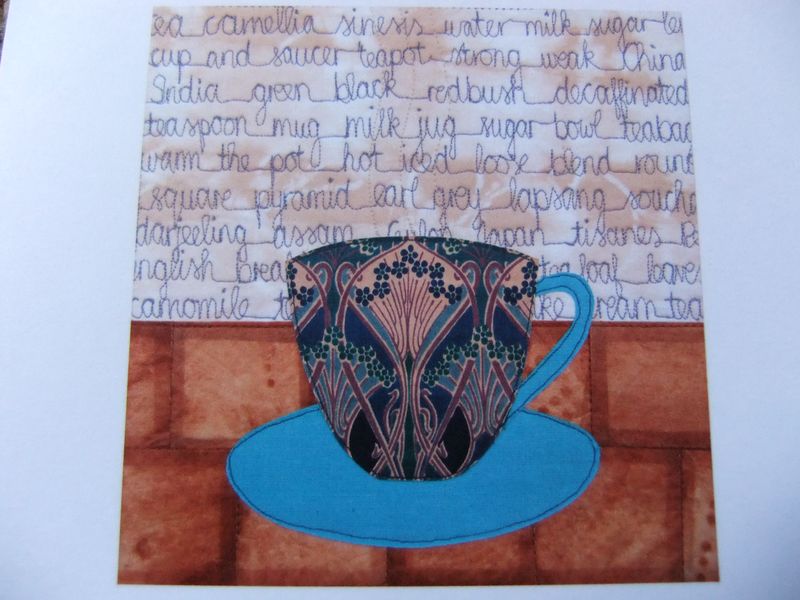 tea camellia sinesis water milk sugar
cup and saucer teapot strong weak China
India green black redbush decaffinated
teaspoon mug milk jug sugar bowl teabag
warm the pot hot iced loose blend round
square pyramid earl grey lapsang
darjeeling assam Japan tisanes
english
camomile cream tea